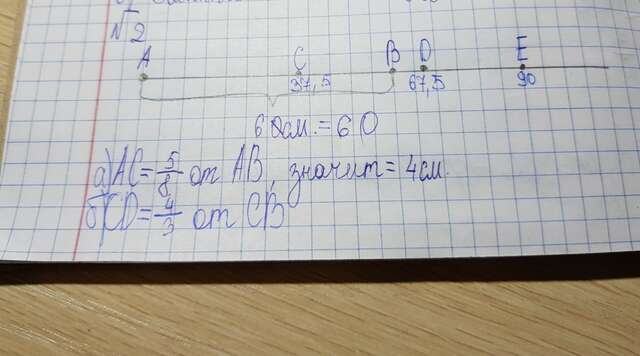 √2
A C B D E
37,5 67,5 90
60см. = 60
а) AC = 5/8 от AB, значит = 4см.
б) CD = 4/3 от CB